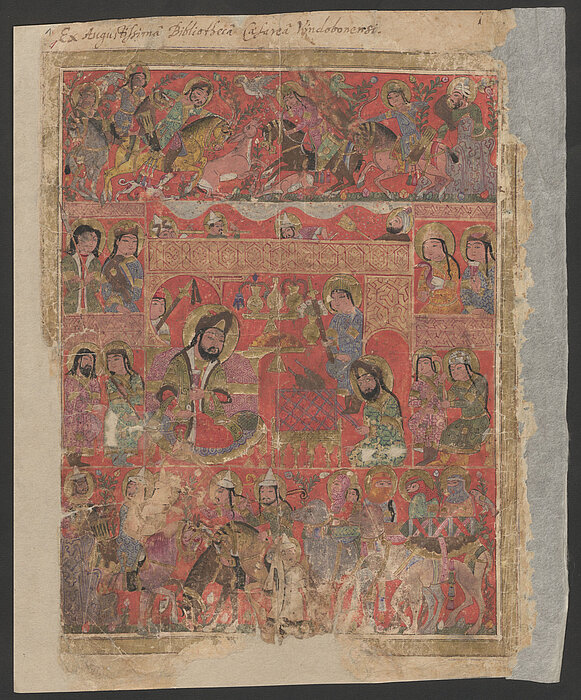 Ex Augustissima Bibliotheca Cæsarea Vindobonensi.